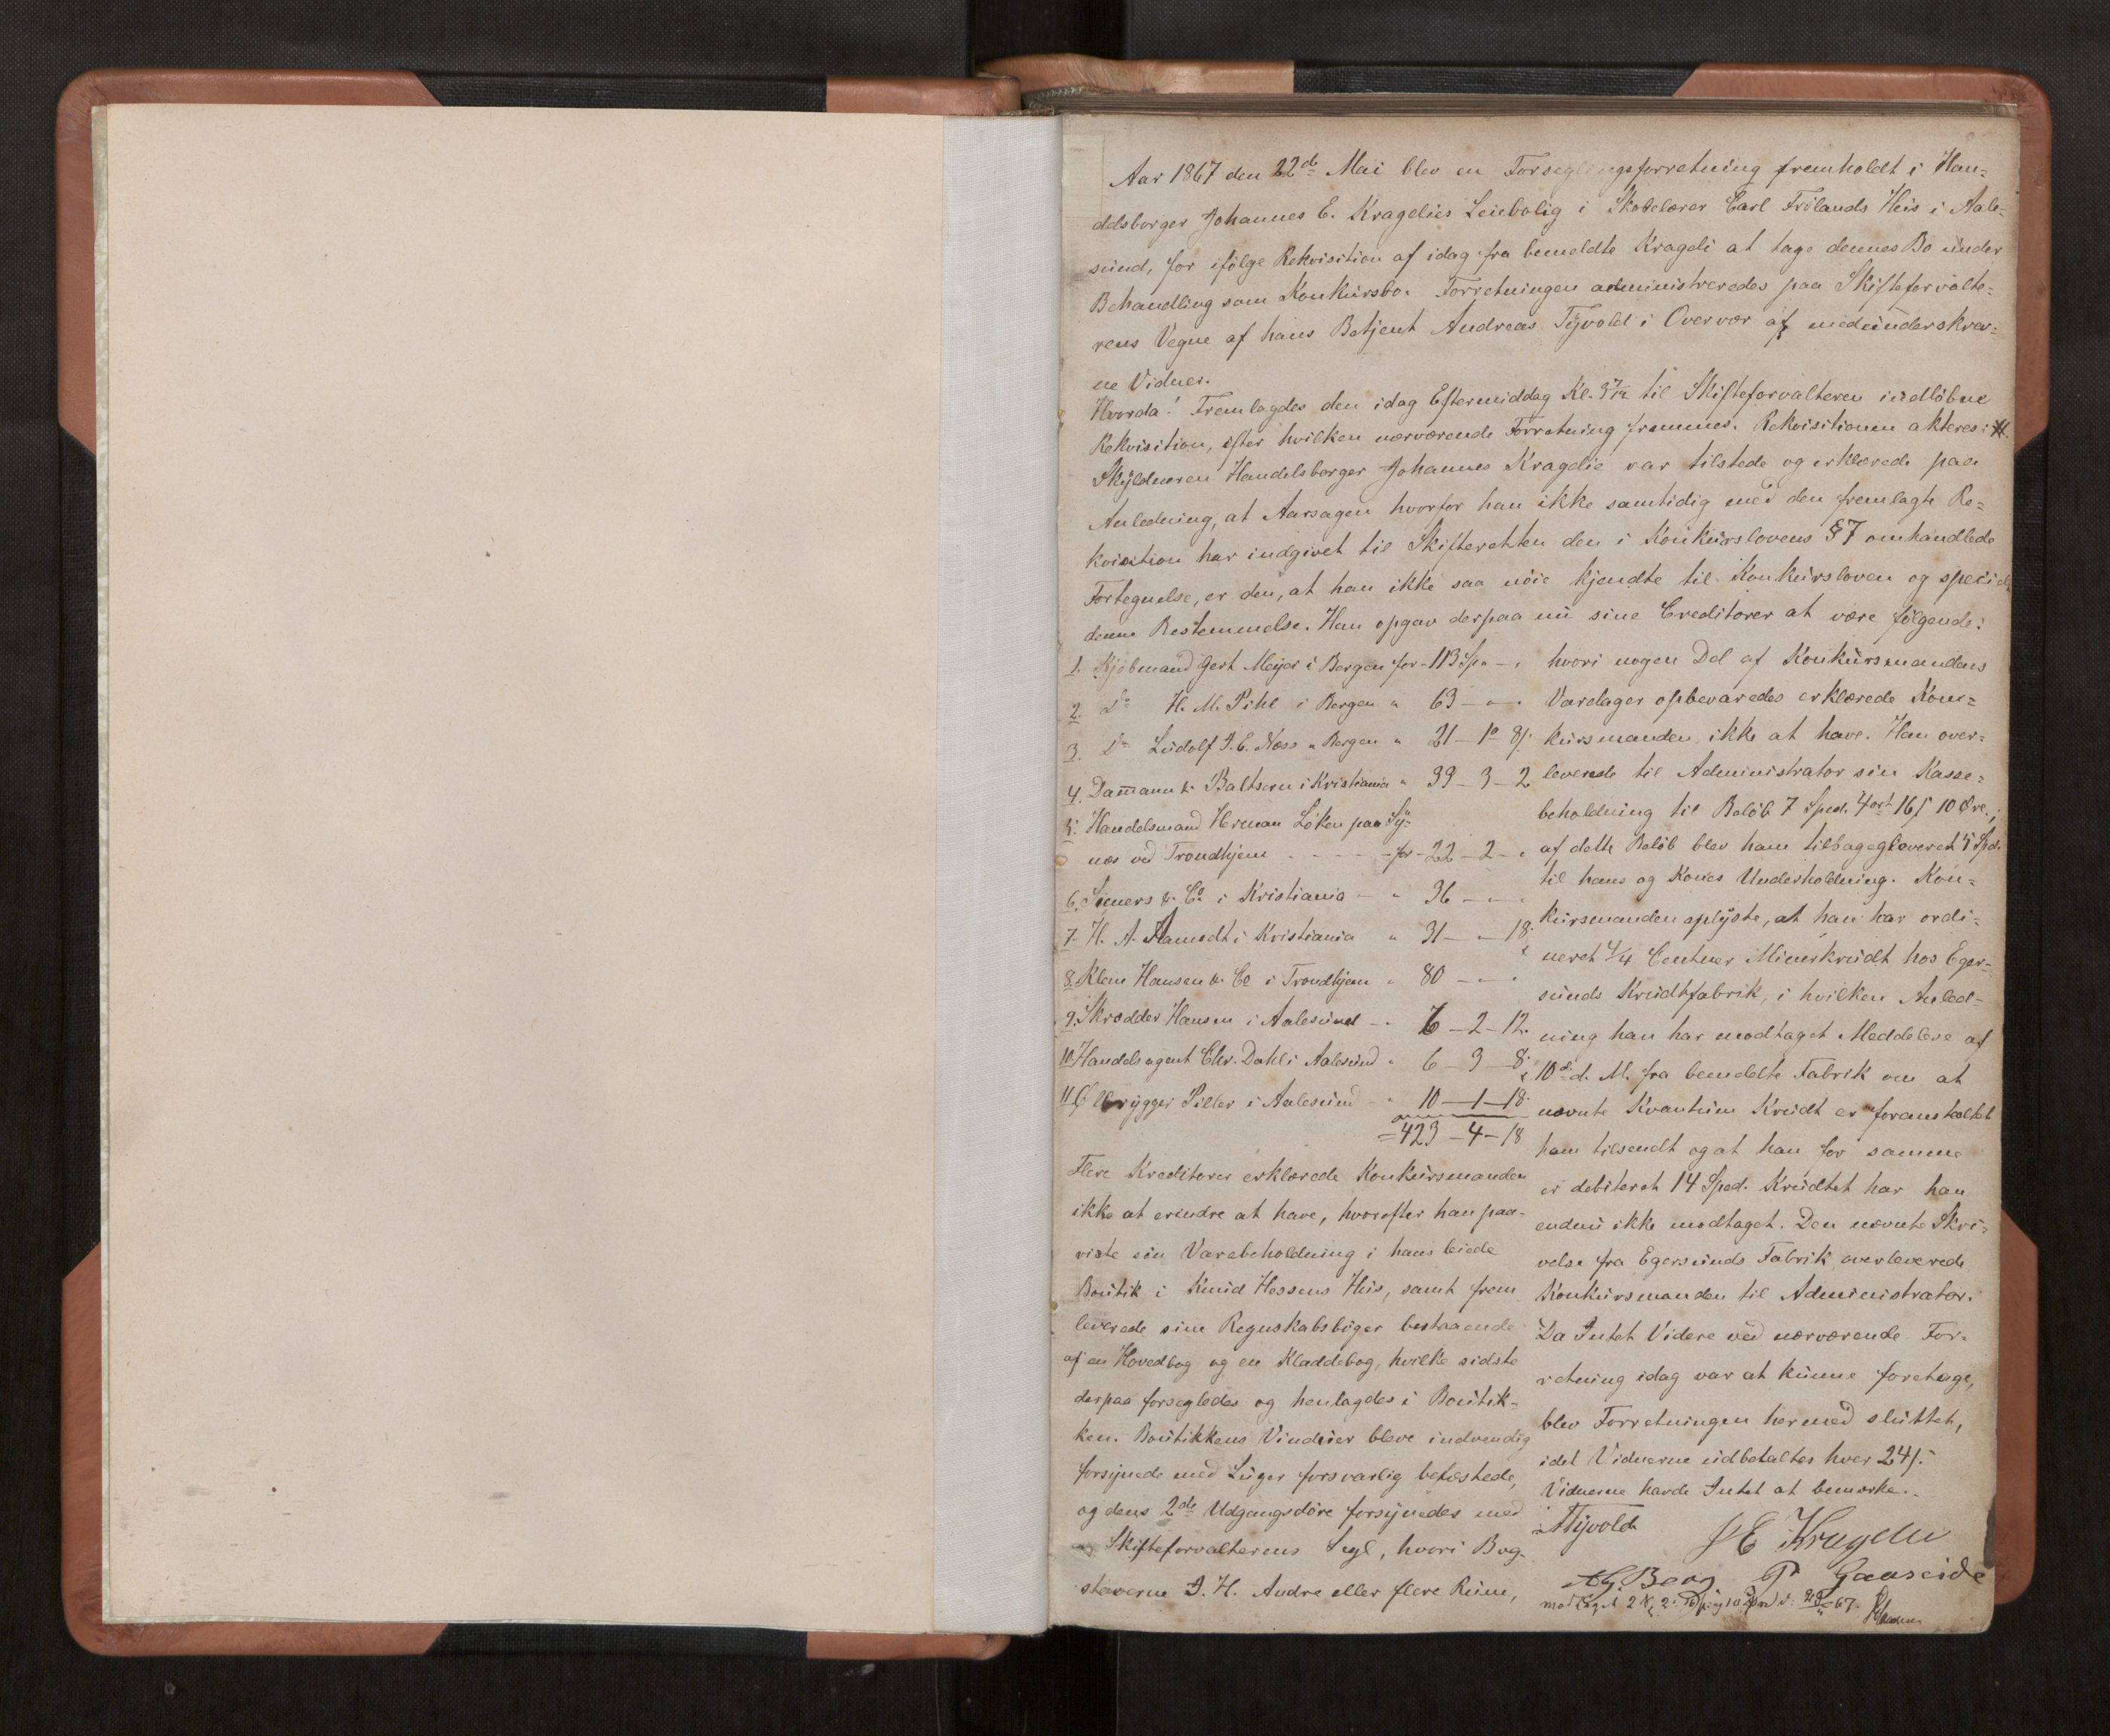 Aar 1867 den 22de Mai blev en Forseglingsforretning fremholdt i Han-
delsborger Johannes E. Kragelies Leiebolig i Skolelærer Carl Frølands Hus i Aale-
sund, for ifølge Rekvisition af idag fra bemeldte Krageli at tage dennes Bo under
Behandling som Konkursbo. Forretningen administreredes paa Skifteforvalte-
rens Vegne af hans Betjent Andreas Tyvold i Overvær af medunderskrev-
ne Vidner.
Hvorda! Fremlagdes den idag Eftermiddag Kl. til Skifteforvalteren indløbne
Rekvisition, efter hvilken nærværende Forretning fremmes. Rekvisitionen akteres:
Skyldneren Handelsborger Johannes Kragelie var tilstede og erklærede paa
Anledning, at Aarsagen hvorfor han ikke samtidig med den fremlagte Re-
kvisition har indgivet til Skifteretten den i Konkurslovens §7 omhandlede
Fortegnelse, er den, at han ikke saa nöie kjendte til Konkursloven og speciel
denne Bestemmelse. Han opgav derpaa nu sine Creditorer at være følgende:
1. Kjøbmand Gert Meyer i Bergen for - 113 Sp " - "
2. Do H. M. Pihl i Bergen " 63 - " - "
3. Do Ludolf J. E. Næss " Bergen " 21 - 1 ort 8 s.
4. Damann & Baltsern i Kristiania " 39 - 3 - 2
5. Handelsmand Herman Løken paa Sy-
næs ved Trondhjem - - - - for - 22 - 2 - "
6. Siemers & Co i Kristiania - " 36 - " - "
7. H. A. Hamsdt i Kristiania " 31 - " - 18.
8. Klem Hansen & Co i Trondhjem " 80 - " - "
9. Skrædder Hansen i Aalesund - " 6 - 2 - 12.
10. Handelsagent Chr. Dahl i Aalesund " 6 - 3 - 8.
11. Ølbrygger Piller i Aalesund - " 10 - 1 - 18.
= 423 - 4 - 18
Flere Kreditorer erklærede Konkursmanden
ikke at erindre at have, hvorefter han paa-
viste sin Varebeholdning i hans leiede
Boutik i Knud Hessens Hus, samt frem
leverede sine Regnskabsbøger bestaaende
af en Hovedbog og en Kladdebog, hvilke sidste
derpaa forsegledes og henlagdes i Boutik-
ken. Boutikkens Vinduer bleve indvendig
forsynede med Luger forsvarlig befæstede,
og dens 2de Udgangsdøre forsynedes med
Skifteforvalterens Segl, hvori Bog-
staverne J. H. Andre eller flere Rum,
hvori nogen Del af Konkursmandens
Varelager opbevaredes erklærede Kon-
kursmanden ikke at have. Han over-
leverede til Administrator sin Kasse-
beholdning til Beløb 7 Spd. 4 ort 16 s 10 Øre;
af dette Beløb blev ham tilbageleveret 5 Spd.
til hans og Kones Underholdning. Kon-
kursmanden oplyste, at han har ordi-
neret 4/4 Centner Minerkrudt hos Eger-
sunds Krudtfabrik, i hvilken Anled-
ning han har modtaget Meddelelse af
10de d. M. fra bemeldte Fabrik om at
nævnte Kvantum Krudt er foranstaltet
ham tilsendt og at han for samme
er debiteret 14 Spd. Krudtet har han
endnu ikke modtaget. Den nævnte Skri-
velse fra Egersunds Fabrik overleverede
Konkursmanden til Administrator.
Da Intet Videre ved nærværende For-
retning idag var at kunne foretage,
blev Forretningen hermed sluttet,
idet Vidnerne udbetaltes hver 24 s.
Vidnerne havde Intet at bemærke.
ATyvold
J E Kragelie
A G. Berg P Gaaseide
modtaget 2